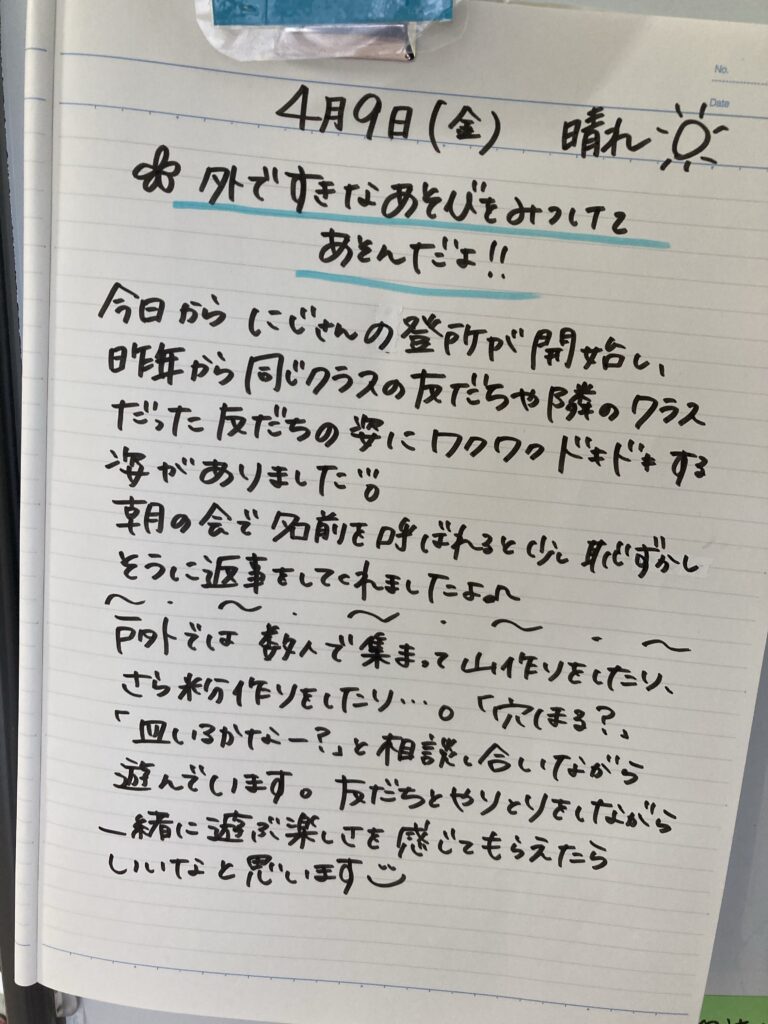 No.
Date
4月9日(金) 晴れ
外ですきなあそびをみつけて
あそんだよ!!
今日から にじさんの登所が開始し、
昨年から同じクラスの友だちや隣のクラス
だった友だちの姿にワクワクドキドキする
姿がありました。
朝の会で名前を呼ばれると少し恥ずかし
そうに返事をしてくれましたよ♪
〜・〜・〜・〜・〜
戸外では 数人で集まって山作りをしたり、
さら粉作りをしたり…。「穴ほる?」
「皿いるかなー?」と相談し合いながら
遊んでいます。友だちとやりとりをしながら
一緒に遊ぶ楽しさを感じてもらえたら
いいなと思います